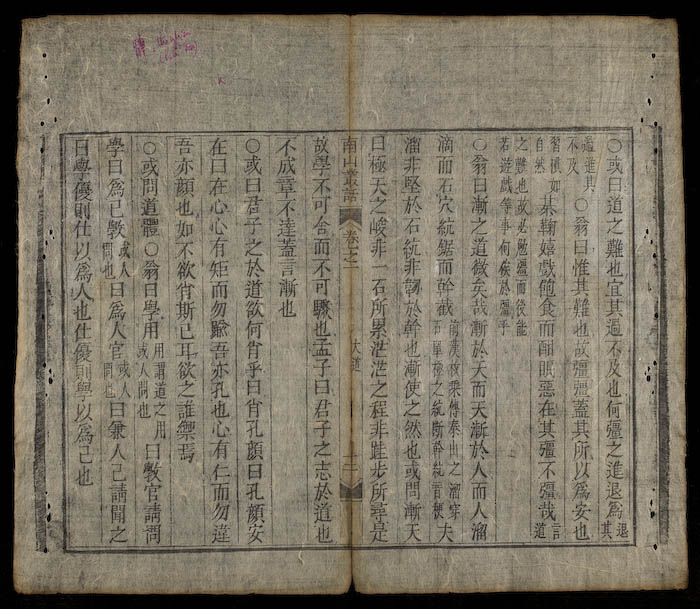 ○或曰道之難也宜其過不及也何彊之進退爲退其
過進其不及○翁曰惟其難也故彊彊蓋其所以爲安也
習慣如自然棊鞠嬉戲飽食而酣眠惡在其彊不彊哉言道
之難也故必勉彊而後能
若遊戲等事何俟於彊乎
○翁曰漸之道微矣哉漸於天而天漸於人而人溜
滴而石穴統鋸而幹截前漢枚乘傳泰山之溜穿石單極之統斷幹統音綆夫
溜非堅於石統非韌於幹也漸使之然也或問漸天
曰極天之峻非一石所累茫茫之程非跬步所尋是
南山叢話 卷之一 大道
故學不可舍而不可驟也孟子曰君子之志於道也
不成章不達蓋言漸也
○或曰君子之於道欲何肖乎曰肖孔顏曰孔顏安
在曰在心心有矩而勿踰吾亦孔也心有仁而勿違
吾亦顏也如不欲肖斯已耳欲之誰禦焉
○或問道體○翁曰學用用謂道之用或人問也曰敎官請問
學曰爲己敎或人問也曰爲人官或人問也曰兼人己請聞之
曰學優則仕以爲人也仕優則學以爲己也